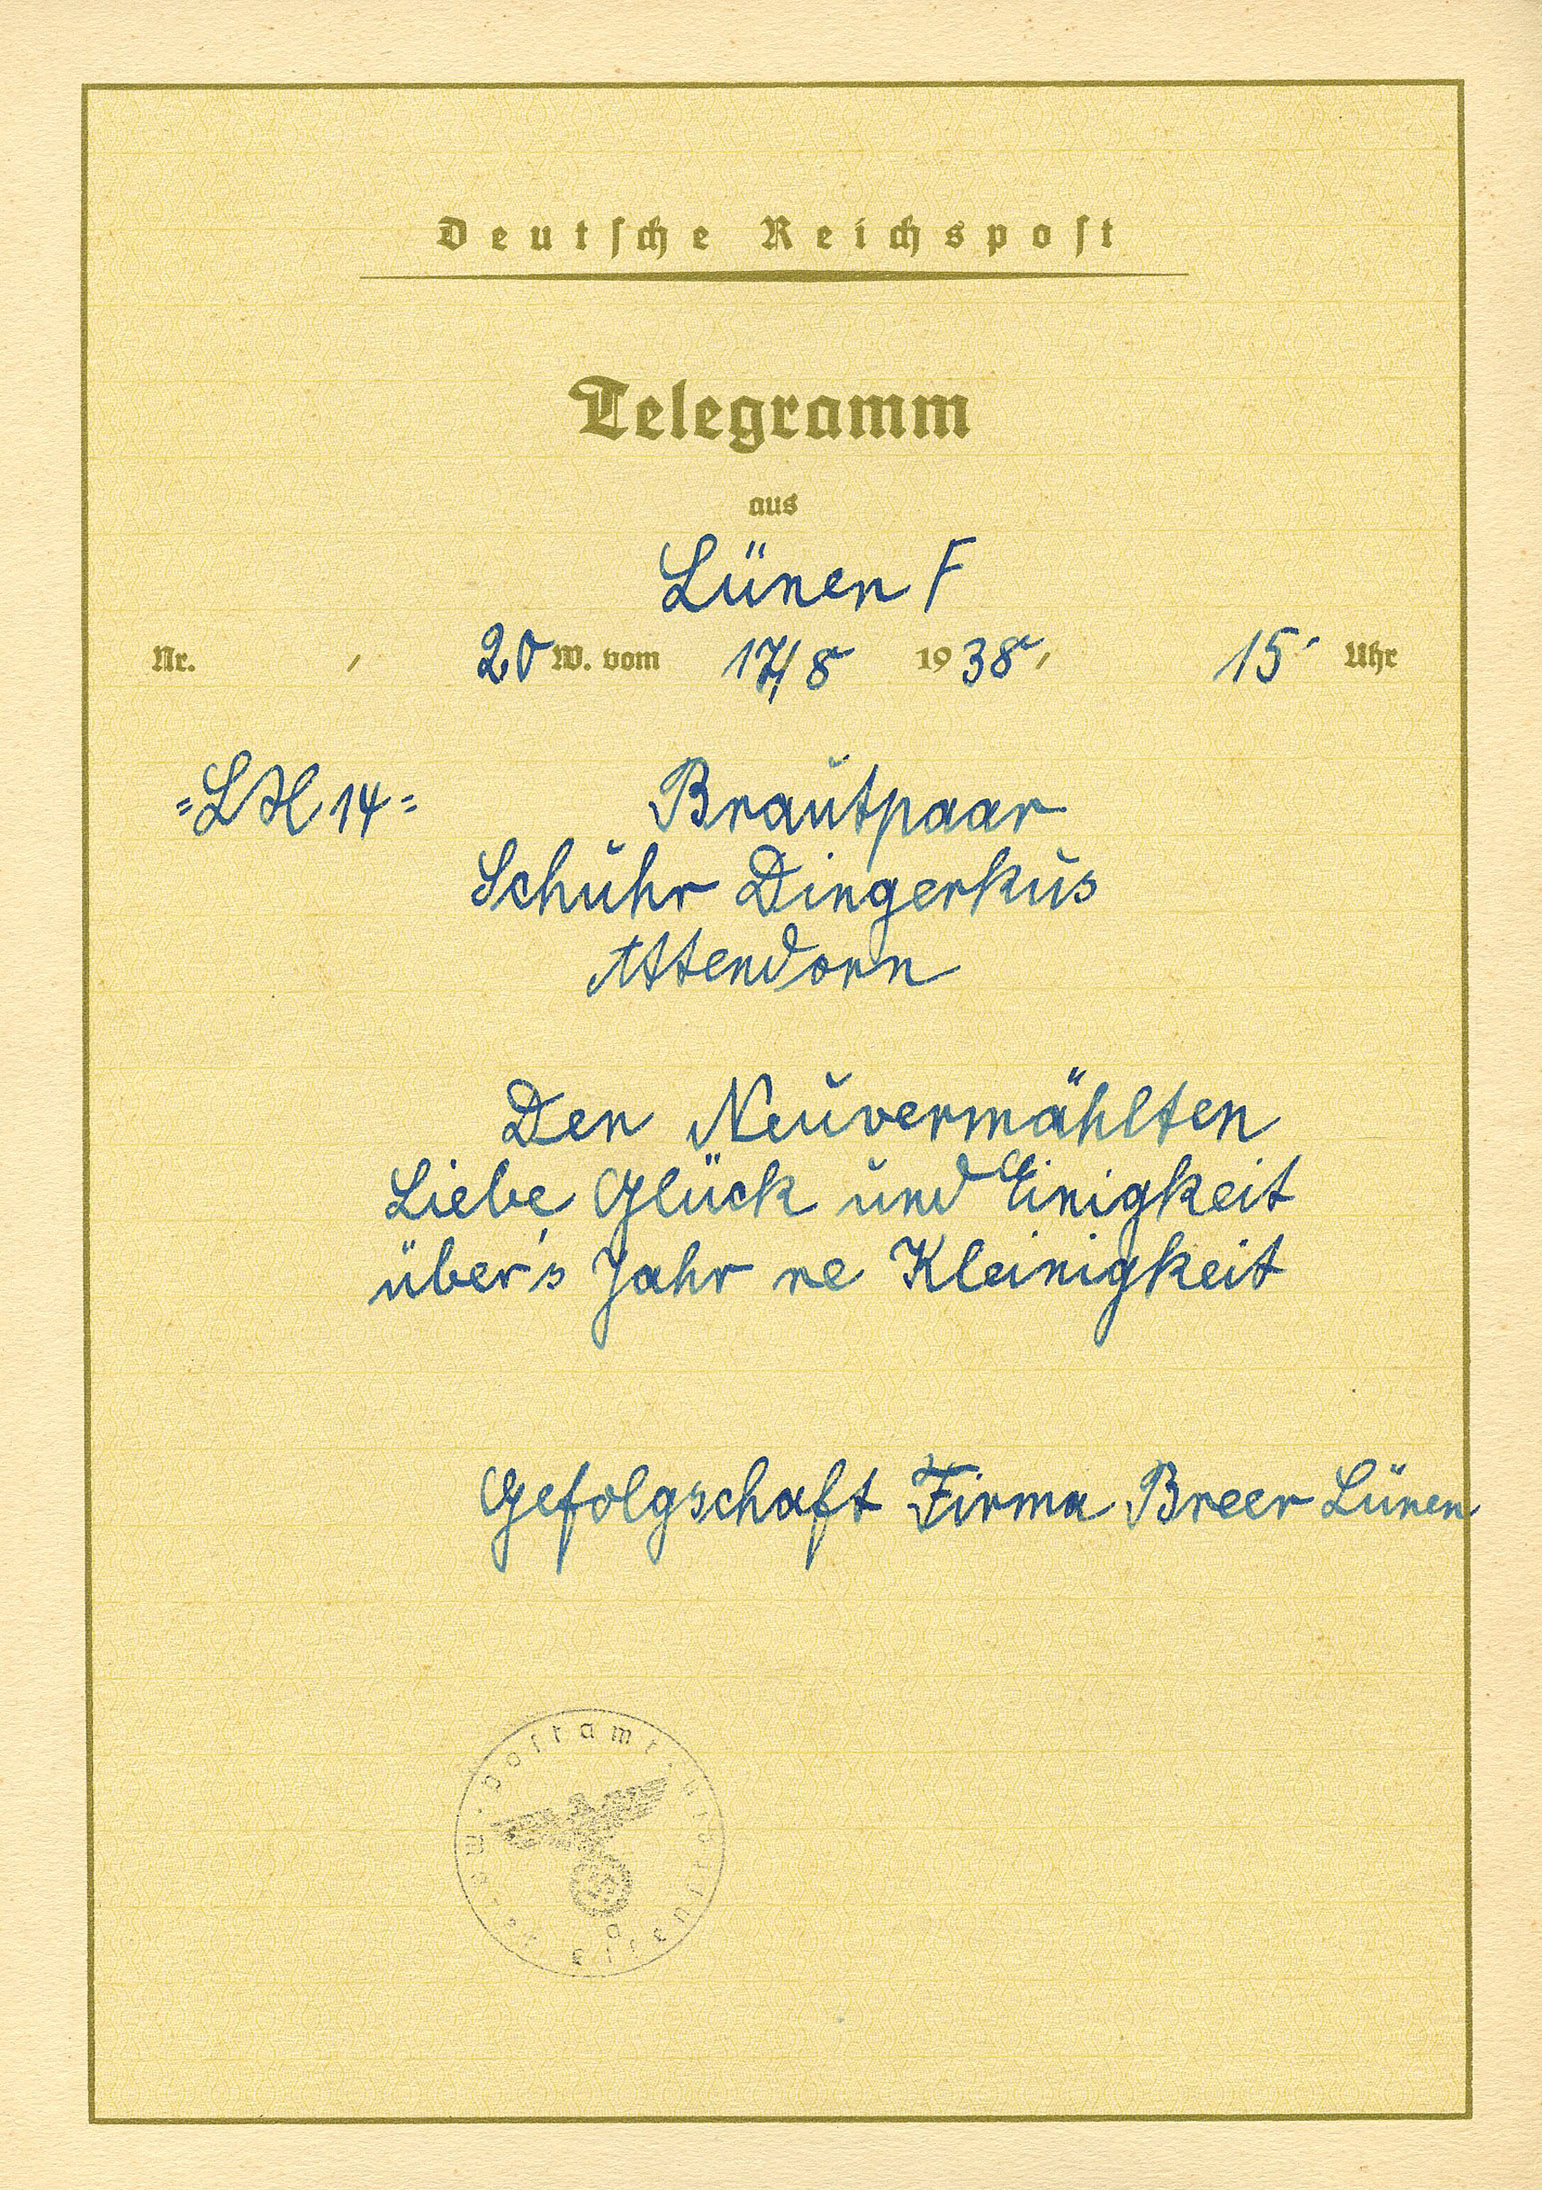 Deutsche Reichspost
Telegramm
aus
Lünen F
Nr. , 20 W. vom 17/8 1938, 15 Uhr
=LX 14= Brautpaar
Schuhr Dingerkus
Attendorn
Den Neuvermählten
Liebe Glück und Einigkeit
über's Jahr ne Kleinigkeit
Gefolgschaft Firma Breer Lünen
postamt